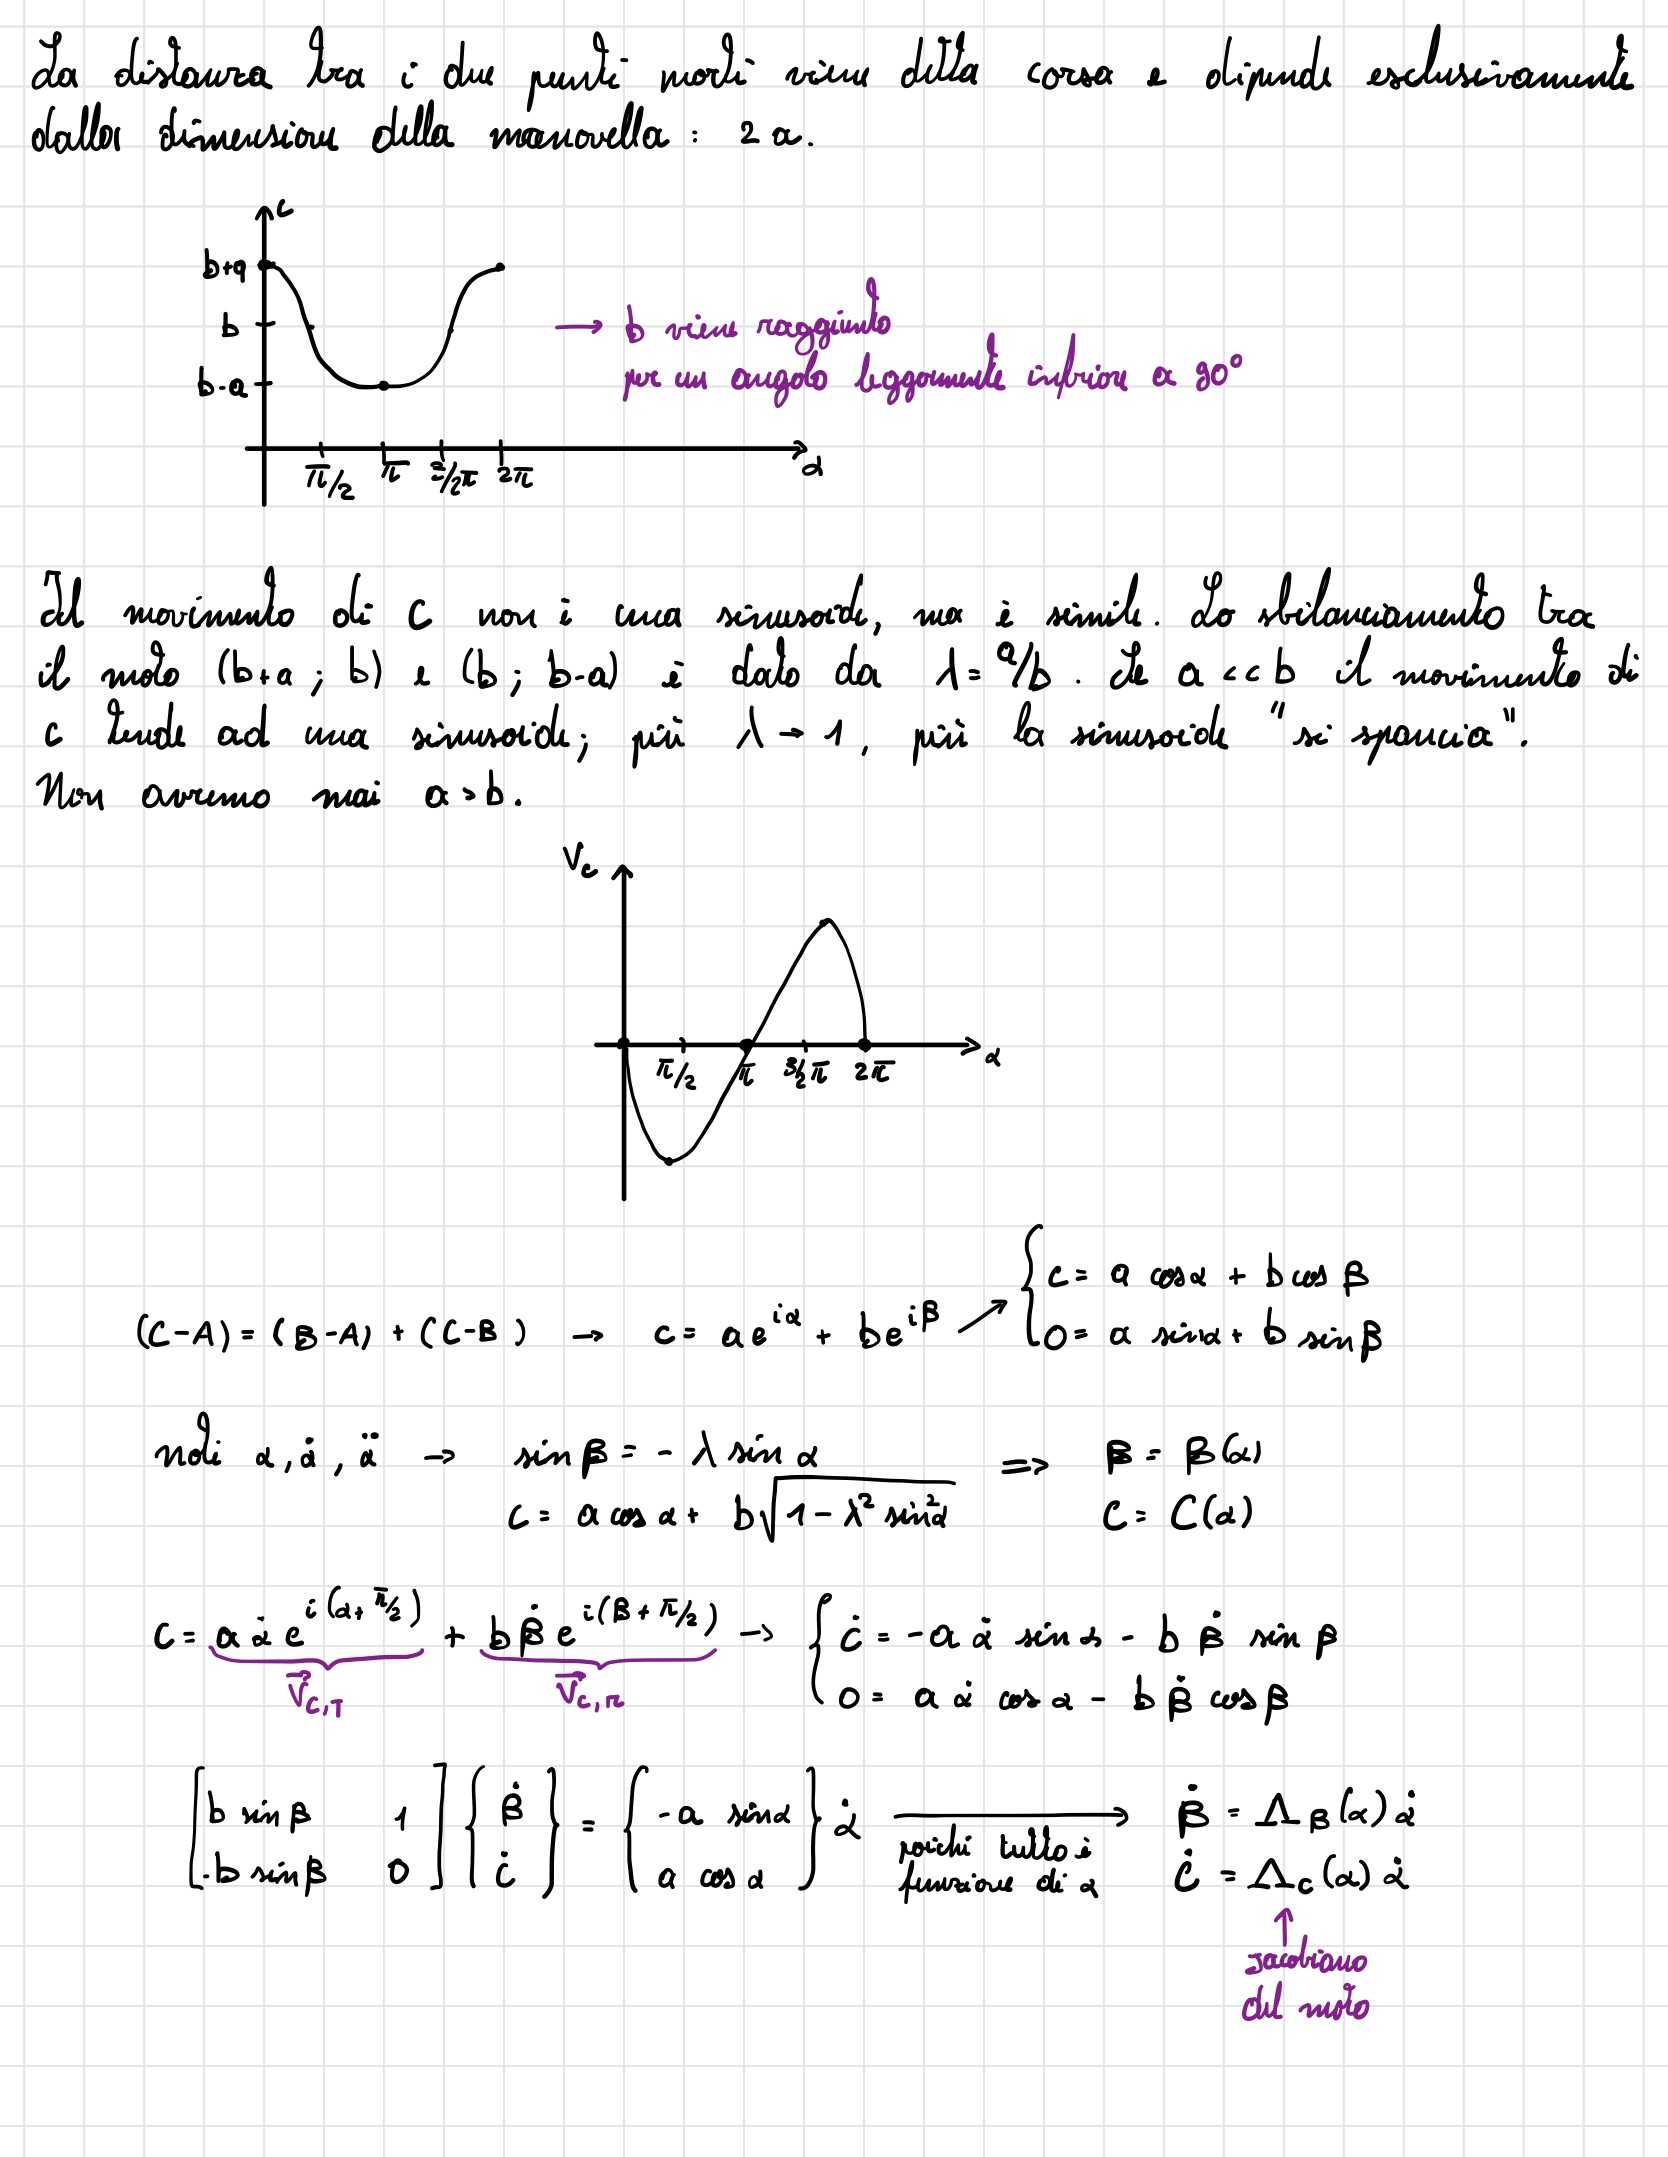 La distanza tra i due punti morti viene detta corsa e dipende esclusivamente
dalla dimensione della manovella : 2a.
c
b+a
b
b-a
π/2 π 3/2π 2π α
→ b viene raggiunto
per un angolo leggermente inferiore a 90°
Il movimento di C non è una sinusoide, ma è simile. Lo sbilanciamento tra
il moto (b+a ; b) e (b ; b-a) è dato da λ = a/b . Se a << b il movimento di
c tende ad una sinusoide; più λ → 1, più la sinusoide "si spancia".
Non avremo mai a > b.
Vc
π/2 π 3/2π 2π α
(C-A) = (B-A) + (C-B) → c = a e^{iα} + b e^{iβ} ↗ { c = a cosα + b cos β
0 = a sinα + b sinβ
noti α, α̇, α̈ → sinβ = - λ sin α ⇒ β = β(α)
c = a cos α + b√(1 - λ² sin²α) C = C(α)
c = a α̇ e^{i(α+π/2)} + b β̇ e^{i(β+π/2)} → { ċ = -a α̇ sin α - b β̇ sin β
V⃗c,T V⃗c,r 0 = a α̇ cos α - b β̇ cos β
[b sinβ 1] {β̇} = {-a sinα} α̇ → β̇ = Λβ(α) α̇
[-b sinβ 0] {ċ} {a cos α} Ċ = Λc(α) α̇
poichè tutto è
funzione di α
↑
Jacobiano
del moto